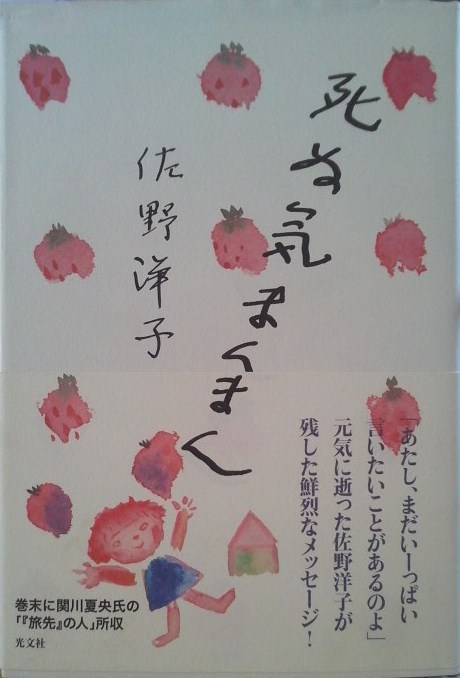 死ぬ気まんまん
佐野洋子
「あたし、まだいーっぱい
言いたいことがあるのよ」
元気に逝った佐野洋子が
残した鮮烈なメッセージ!
巻末に関川夏央氏の
「『旅先』の人」所収
光文社